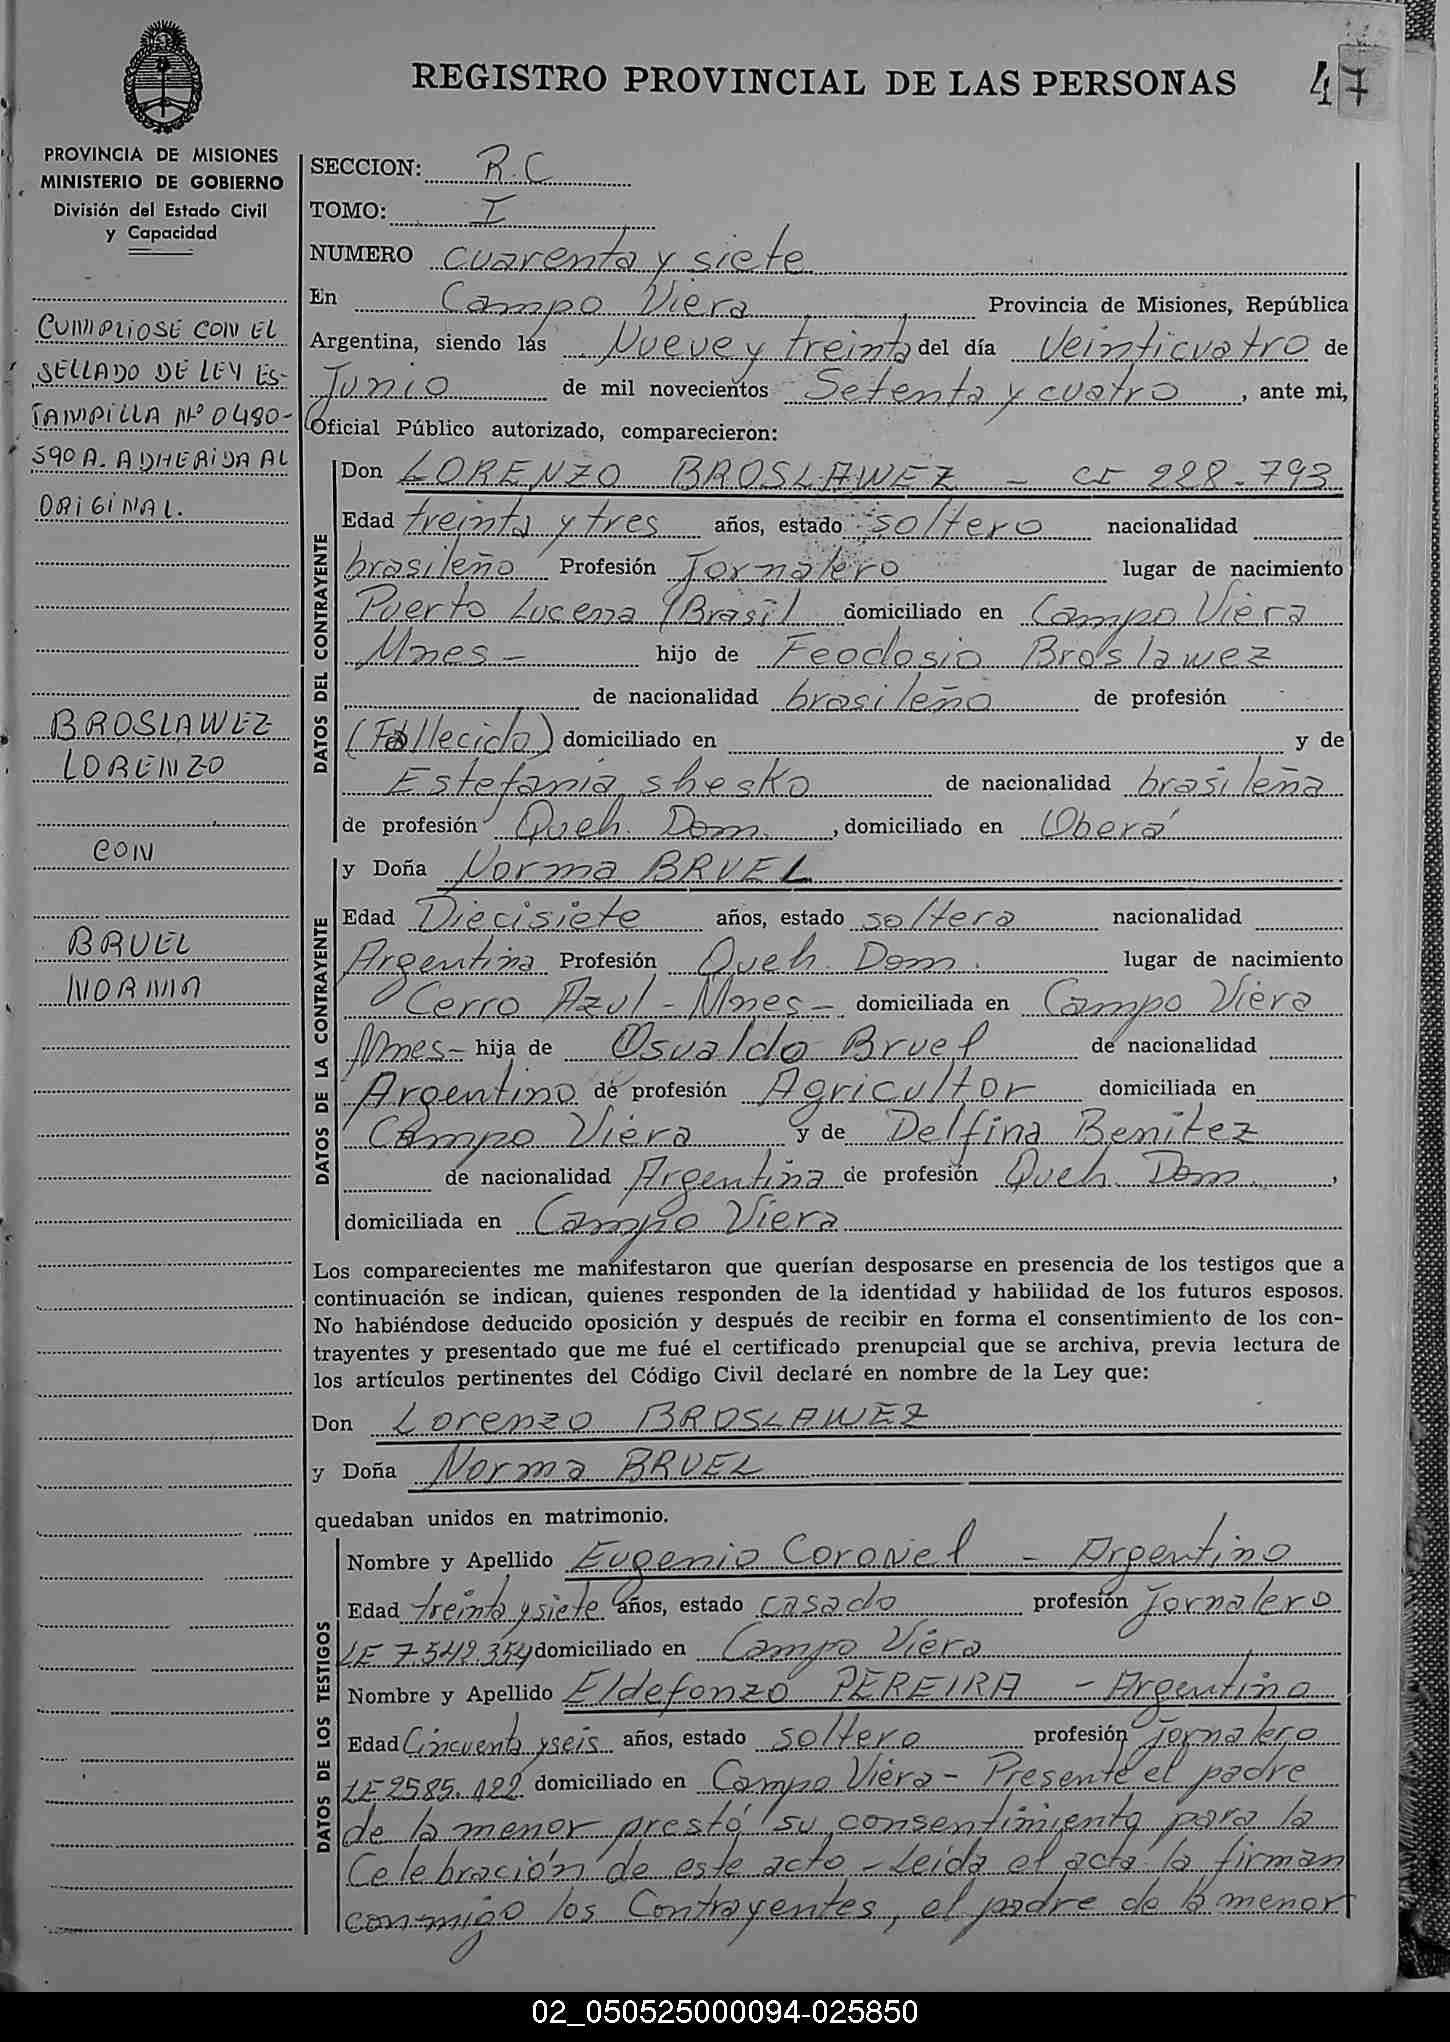 REGISTRO PROVINCIAL DE LAS PERSONAS 47
PROVINCIA DE MISIONES
MINISTERIO DE GOBIERNO
División del Estado Civil
y Capacidad
CUMPLIOSE CON EL
SELLADO DE LEY ES-
TAMPILLA Nº 0480-
590 A. ADHERIDA AL
ORIGINAL.
BROSLAWEZ
LORENZO
CON
BRUEL
NORMA
SECCION: R.C
TOMO: I
NUMERO cuarenta y siete
En Campo Viera Provincia de Misiones, República
Argentina, siendo las Nueve y treinta del día Veinticuatro de
Junio de mil novecientos Setenta y cuatro, ante mi,
Oficial Público autorizado, comparecieron:
DATOS DEL CONTRAYENTE
Don LORENZO BROSLAWEZ - CI 228.793
Edad treinta y tres años, estado soltero nacionalidad
brasileño Profesión Jornalero lugar de nacimiento
Puerto Lucena (Brasil domiciliado en Campo Viera
Mnes - hijo de Feodosio Broslawez
de nacionalidad brasileño de profesión
(Fallecido) domiciliado en y de
Estefania shesko de nacionalidad brasileña
de profesión Queh. Dom. , domiciliado en Oberá
DATOS DE LA CONTRAYENTE
y Doña Norma BRUEL
Edad Diecisiete años, estado soltera nacionalidad
Argentina Profesión Queh. Dom. lugar de nacimiento
Cerro Azul - Mnes - domiciliada en Campo Viera
Mnes - hija de Osvaldo Bruel de nacionalidad
Argentino de profesión Agricultor domiciliada en
Campo Viera y de Delfina Benitez
de nacionalidad Argentina de profesión Queh. Dom. ,
domiciliada en Campo Viera
Los comparecientes me manifestaron que querían desposarse en presencia de los testigos que a
continuación se indican, quienes responden de la identidad y habilidad de los futuros esposos.
No habiéndose deducido oposición y después de recibir en forma el consentimiento de los con-
trayentes y presentado que me fué el certificado prenupcial que se archiva, previa lectura de
los artículos pertinentes del Código Civil declaré en nombre de la Ley que:
Don Lorenzo BROSLAWEZ
y Doña Norma BRUEL
quedaban unidos en matrimonio.
DATOS DE LOS TESTIGOS
Nombre y Apellido Eugenio Coronel - Argentino
Edad treinta y siete años, estado casado profesión Jornalero
LE 7.542.354 domiciliado en Campo Viera
Nombre y Apellido Eldefonzo PEREIRA - Argentino
Edad Cincuenta y seis años, estado soltero profesión Jornalero
LE 2585.122 domiciliado en Campo Viera - Presente el padre
de la menor prestó su consentimiento para la
Celebración de este acto - Leída el acta la firman
conmigo los Contrayentes, el padre de la menor
02_050525000094-025850